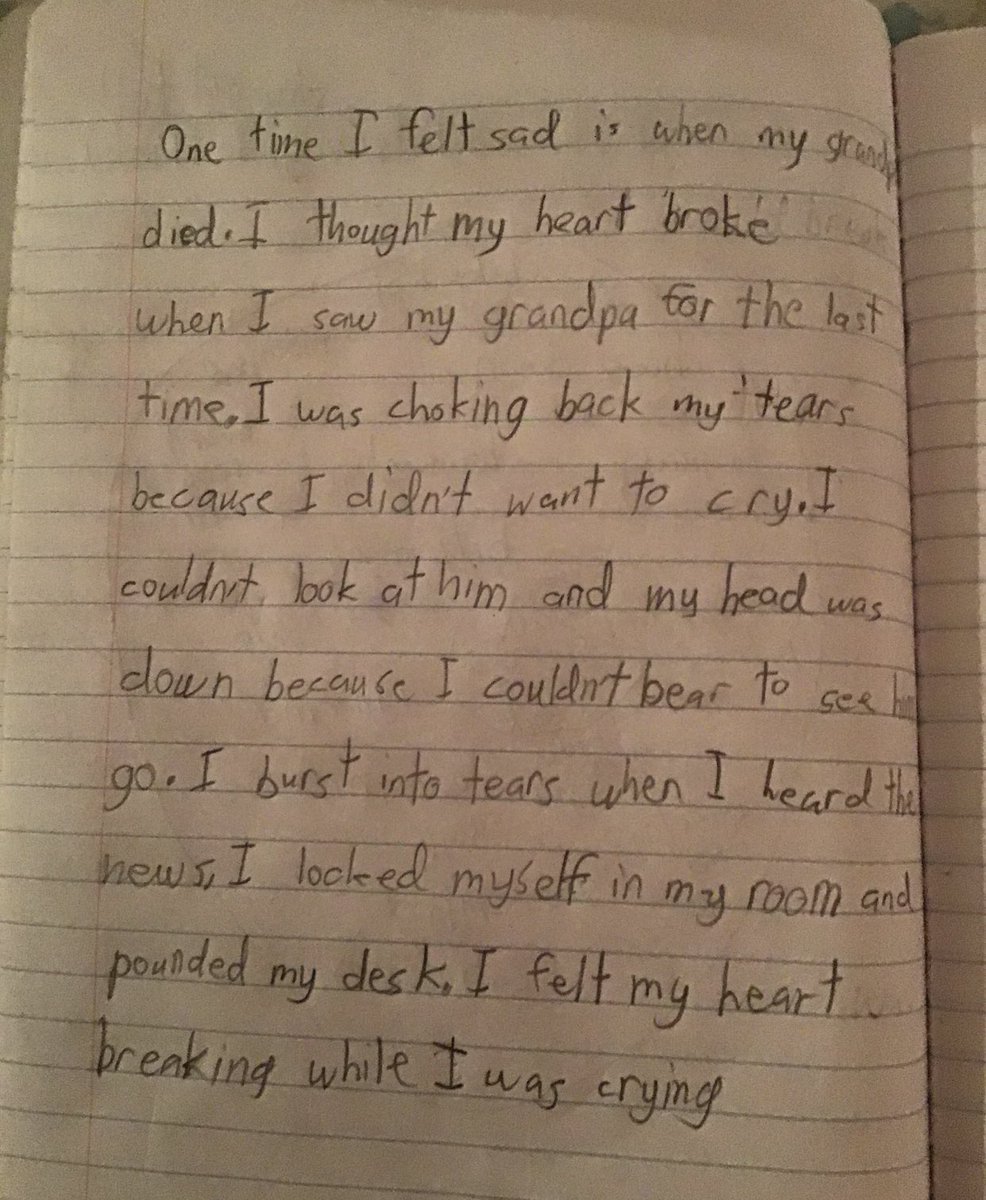 One time I felt sad is when my grandp
died. I thought my heart broke
when I saw my grandpa for the last
time. I was choking back my tears
because I didn't want to cry. I
couldn't look at him and my head was
down because I couldn't bear to see him
go. I burst into tears when I heard the
news, I locked myself in my room and
pounded my desk. I felt my heart
breaking while I was crying